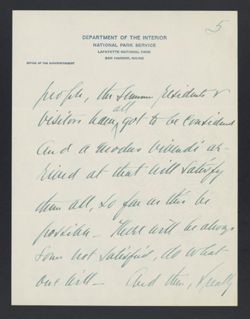 5
DEPARTMENT OF THE INTERIOR
NATIONAL PARK SERVICE
LAFAYETTE NATIONAL PARK
BAR HARBOR, MAINE
OFFICE OF THE SUPERINTENDENT
people, the Summer residents &
all
visitors have got to be considered
And a modus vivendi ar-
rived at that will satisfy
them all, so far as this be
possible — There will be always
Some not satisfied, do what
one will — And then, finally